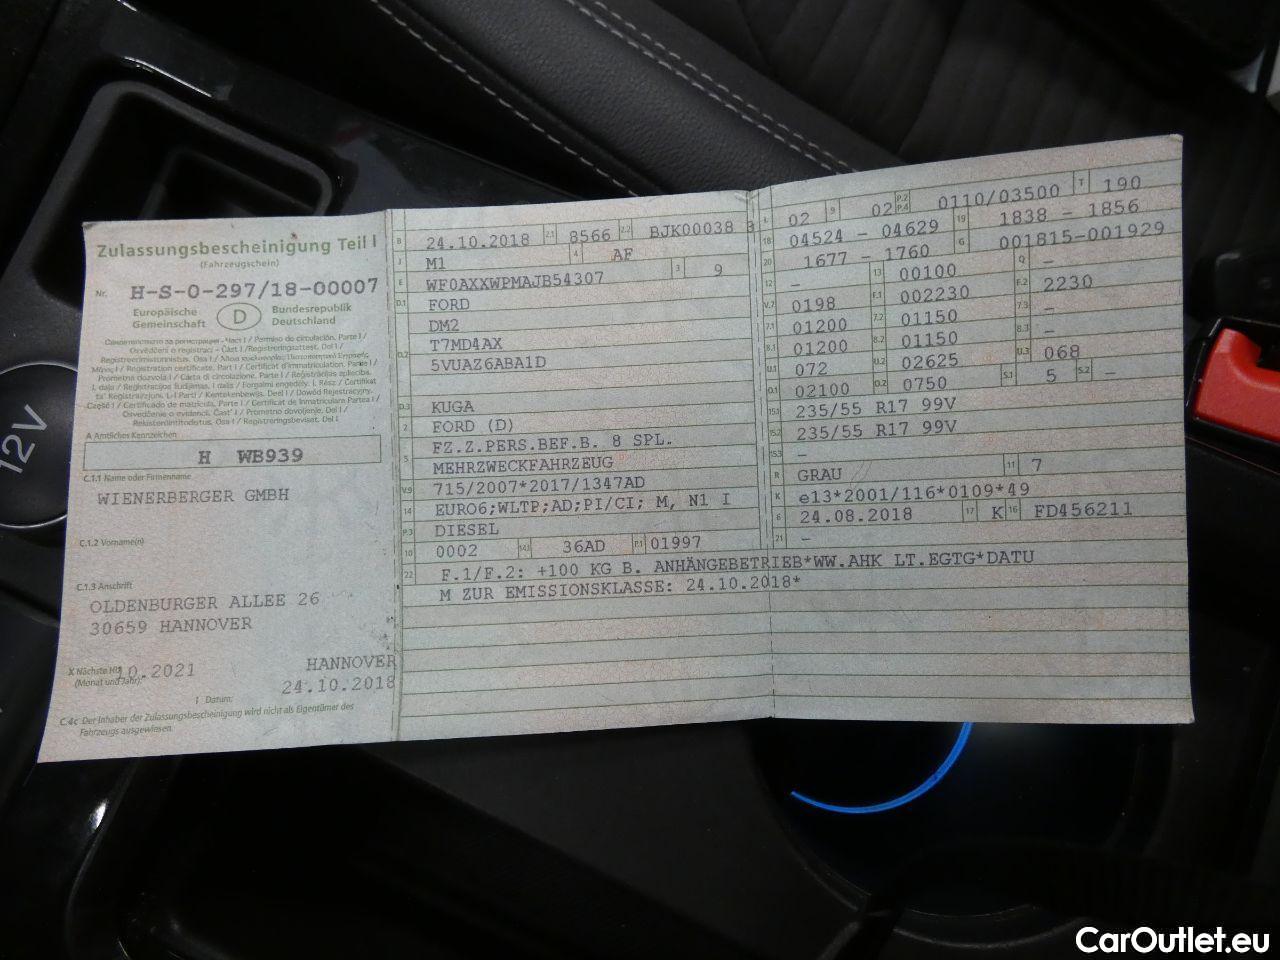 12V
Zulassungsbescheinigung Teil I
(Fahrzeugschein)
Nr. H-S-O-297/18-00007
Europäische Gemeinschaft
D
Bundesrepublik Deutschland
A Amtliches Kennzeichen
H WB939
C.1.1 Name oder Firmenname
WIENERBERGER GMBH
C.1.2 Vorname(n)
C.1.3 Anschrift
OLDENBURGER ALLEE 26
30659 HANNOVER
X Nächste HU
(Monat und Jahr):
10.2021
HANNOVER
I Datum:
24.10.2018
C.4c Der Inhaber der Zulassungsbescheinigung wird nicht als Eigentümer des
Fahrzeugs ausgewiesen.
B 24.10.2018 2.1 8566 2.2 BJK00038 3
J M1 4 AF
E WF0AXXWPMAJB54307 3 9
D.1 FORD
DM2
D.2 T7MD4AX
5VUAZ6ABA1D
D.3 KUGA
2 FORD (D)
5 FZ.Z.PERS.BEF.B. 8 SPL.
MEHRZWECKFAHRZEUG
V.9 715/2007*2017/1347AD
14 EURO6;WLTP;AD;PI/CI; M, N1 I
P.3 DIESEL
10 0002 14.1 36AD P.1 01997
22 F.1/F.2: +100 KG B. ANHÄNGEBETRIEB*WW.AHK LT.EGTG*DATU
M ZUR EMISSIONSKLASSE: 24.10.2018*
L 02 9 02 P.2 P.4 0110/03500 T 190
18 04524 - 04629 19 1838 - 1856
20 1677 - 1760 G 001815-001929
12 - 13 00100 Q -
V.7 0198 F.1 002230 F.2 2230
7.1 01200 7.2 01150 7.3 -
8.1 01200 8.2 01150 8.3 -
U.1 072 U.2 02625 U.3 068
O.1 02100 O.2 0750 S.1 5 S.2 -
15.1 235/55 R17 99V
15.2 235/55 R17 99V
15.3 -
R GRAU 11 7
K e13*2001/116*0109*49
6 24.08.2018 17 K 16 FD456211
21 -
CarOutlet.eu